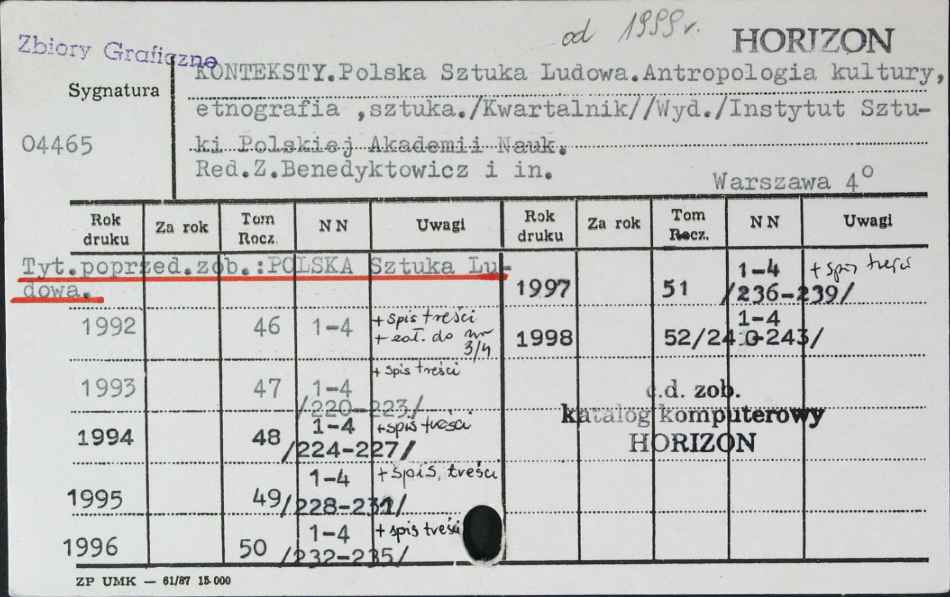 od 1999 r.
HORIZON
Zbiory Graficzne
Sygnatura
04465
KONTEKSTY.Polska Sztuka Ludowa.Antropologia kultury,
etnografia ,sztuka./Kwartalnik//Wyd./Instytut Sztu-
ki Polskiej Akademii Nauk.
Red.Z.Benedyktowicz i in.
Warszawa 4°
Rok druku Za rok Tom Rocz. NN Uwagi Rok druku Za rok Tom Rocz. NN Uwagi
Tyt.poprzed.zob.:POLSKA Sztuka Lu-
dowa.
1992 46 1-4 + spis treści
+ zał. do nr 3/4
1993 47 1-4 /220-223/ + spis treści
1994 48 1-4 /224-227/ + spis treści
1995 49 1-4 /228-231/ + spis treści
1996 50 1-4 /232-235/ + spis treści
1997 51 1-4 /236-239/ + spis treści
1998 52 1-4 /240-243/
c.d. zob.
katalog komputerowy
HORIZON
ZP UMK — 61/87 15 000